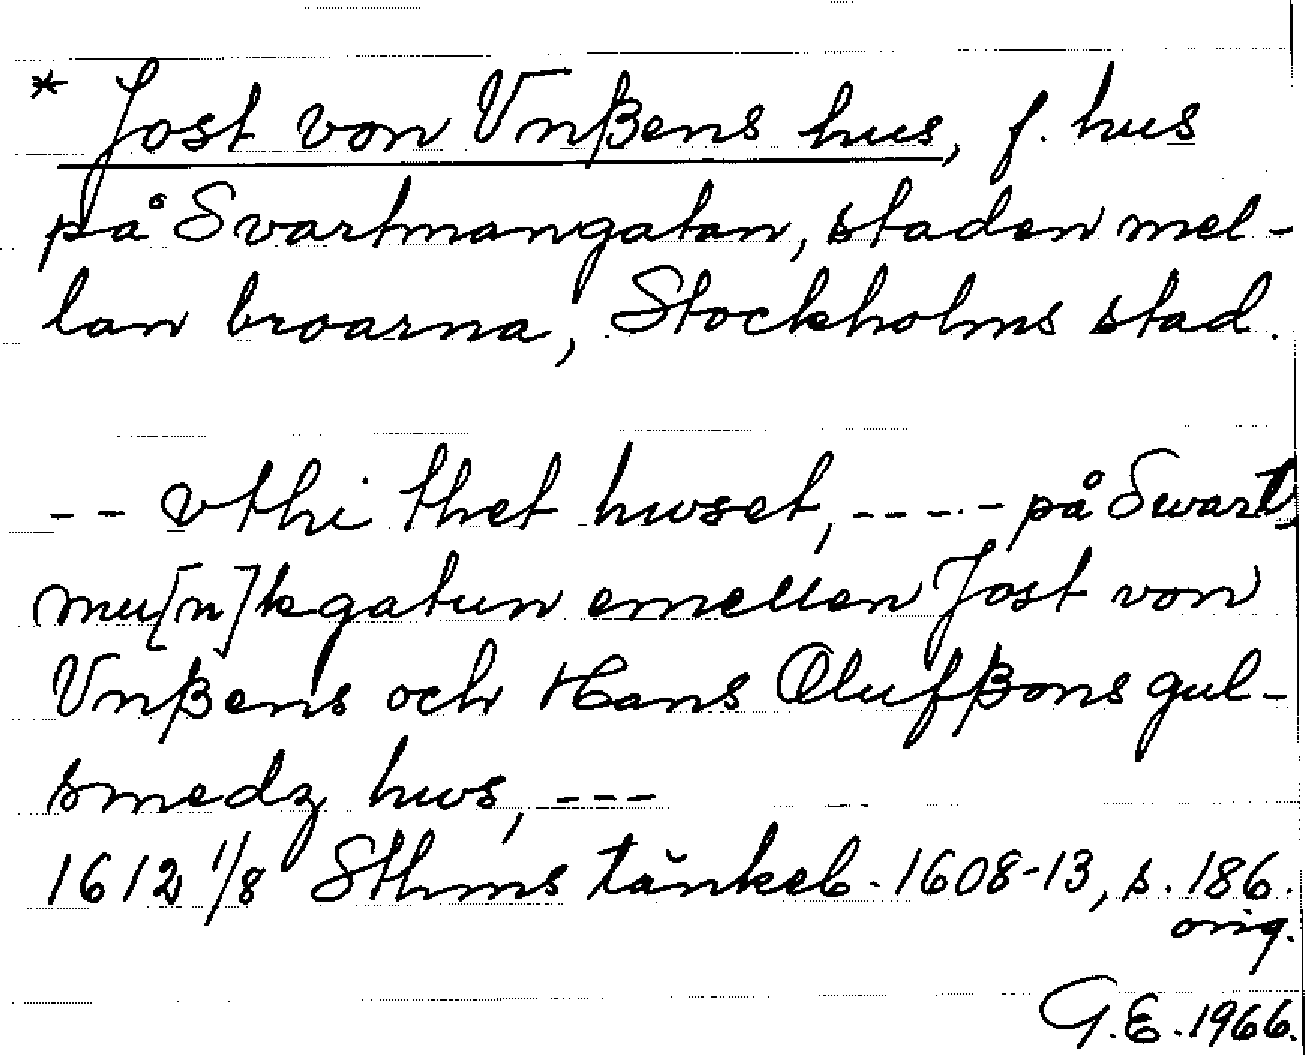 * Jost von Vnßens hus, f. hus
på Svartmangatan, staden mel-
lan broarna, Stockholms stad.
-- vthi thet huset, ----- på Swart
mu[n]kgatun emellen Jost von
Vnßens och Hans Olufßons gul-
smedz hws, ---
1612 1/8 Sthms tänkeb. 1608-13, s. 186.
orig.
G.E. 1966.